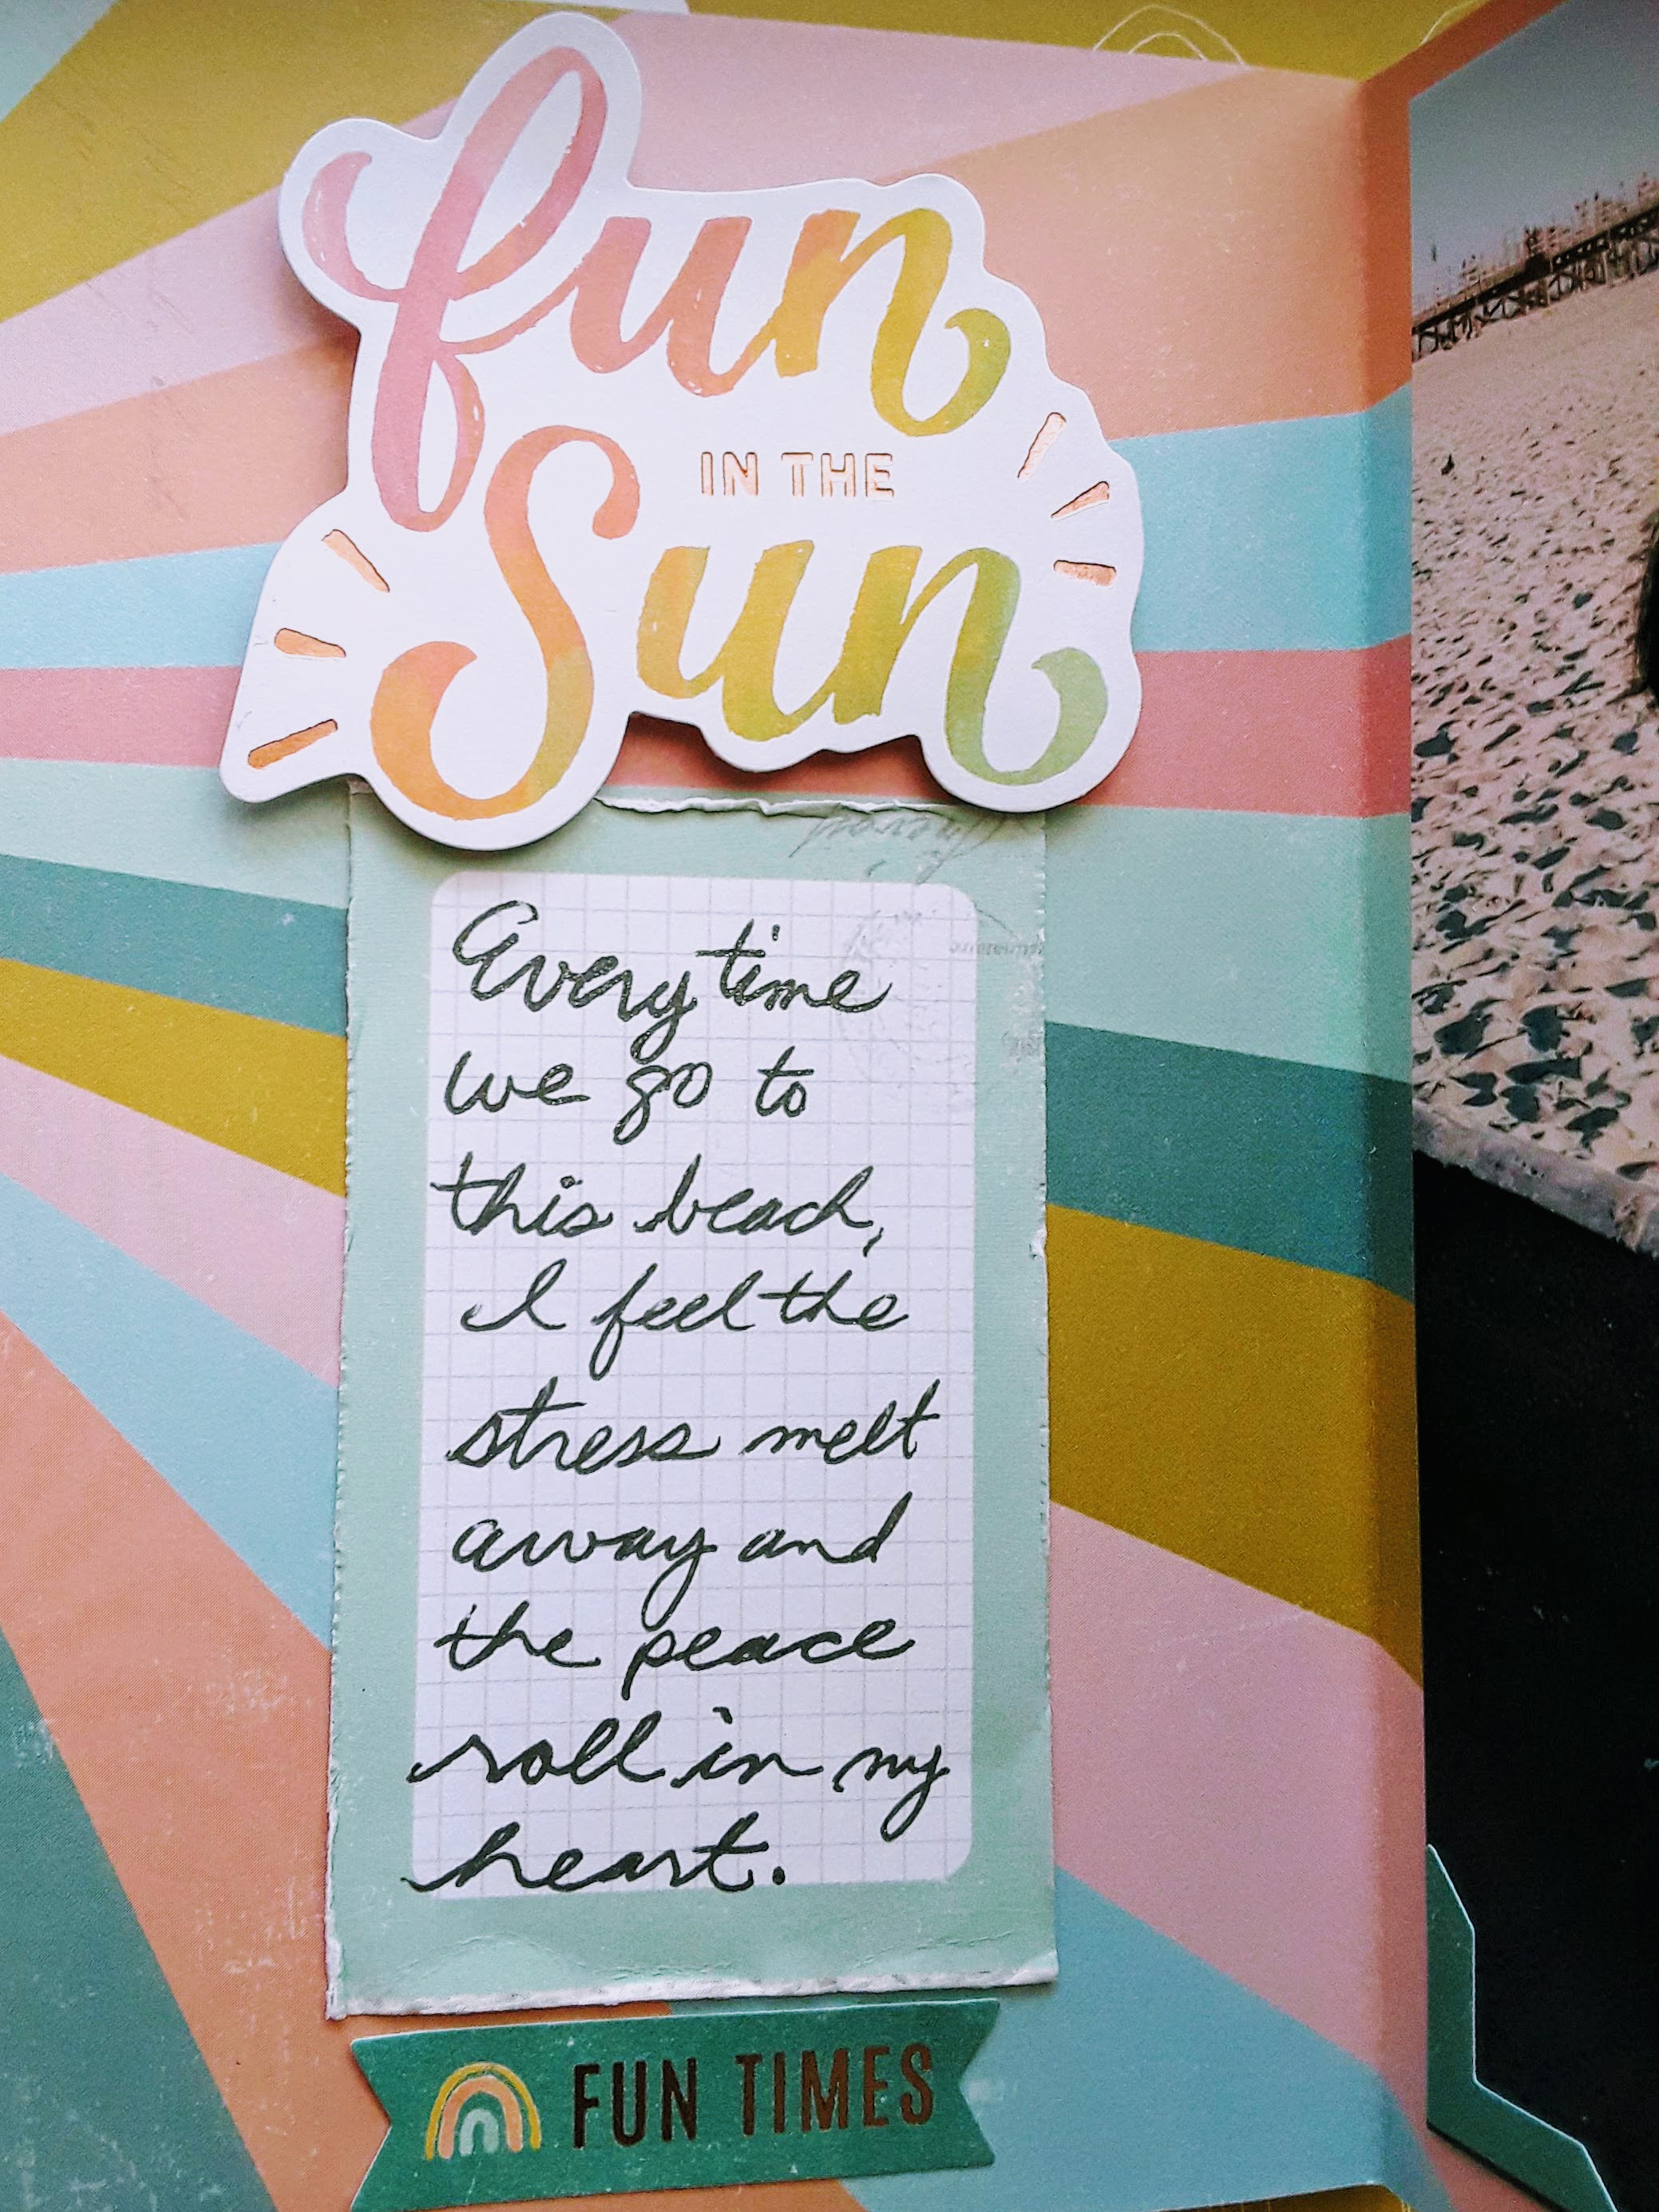 fun
IN THE
Sun
Every time
we go to
this beach,
I feel the
stress melt
away and
the peace
roll in my
heart.
FUN TIMES